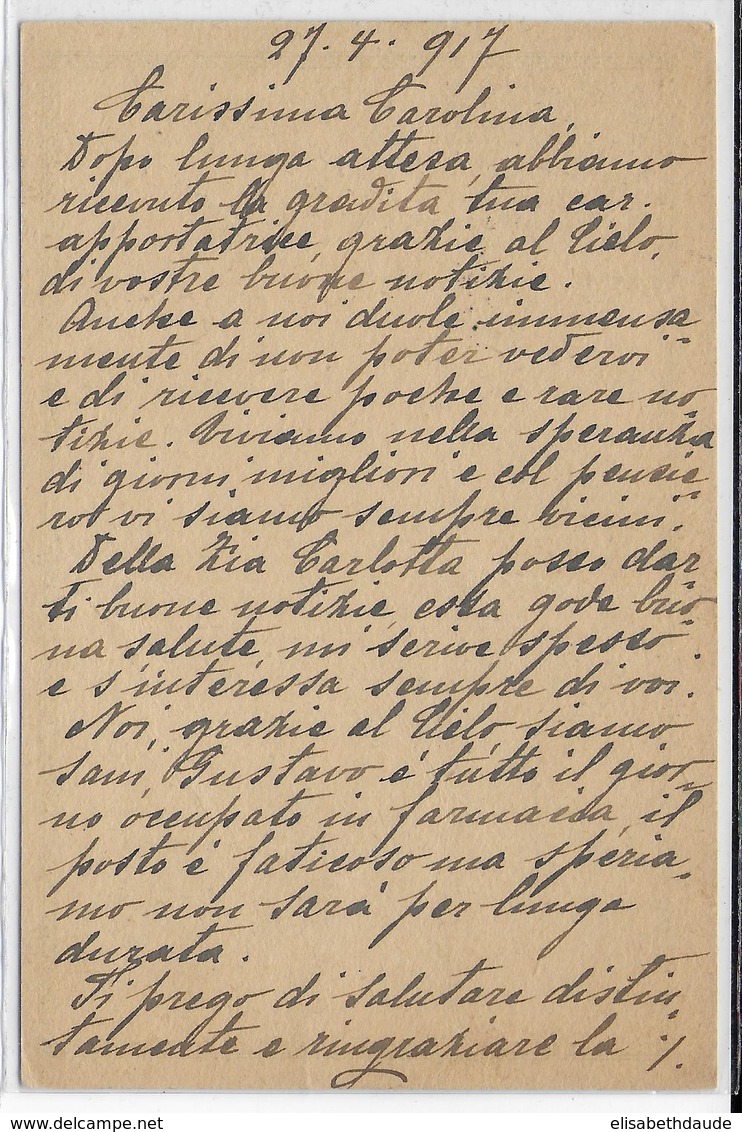 27. 4. 917
Carissima Carolina,
Dopo lunga attesa, abbiamo
ricevuto la gradita tua car.
apportatrice, grazie al Cielo,
di vostre buone notizie.
Anche a noi duole immensa
mente di non poter vedervi
e di ricevere poche e rare no
tizie. Viviamo nella speranza
di giorni migliori e col pensie
ro vi siamo sempre vicini.
Della Zia Carlotta posso dar
ti buone notizie, essa gode buo
na salute, mi scrive spesso
e s'interessa sempre di voi.
Noi, grazie al Cielo siamo
sani, Gustavo é tutto il gior
no occupato in farmacia, il
posto é faticoso ma speria
mo non sará per lunga
durata.
Ti prego di salutare distin
tamente e ringraziare la ./.
elisabethdaude